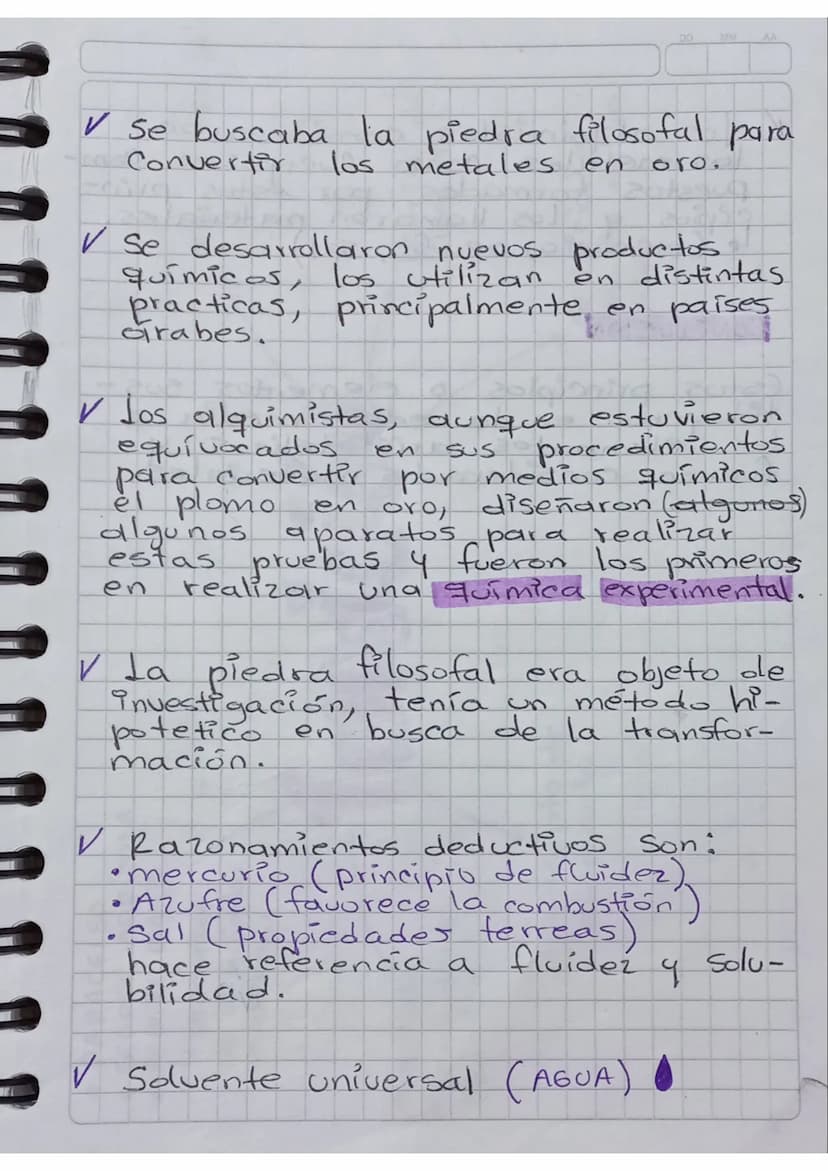 DD MM AA
✓ Se buscaba la piedra filosofal para
convertir los metales en oro.
✓ Se desarrollaron nuevos productos
químicos, los utilizan en distintas
practicas, principalmente en países
árabes.
✓ Los alquimistas, aunque estuvieron
equívocados en sus procedimientos
para convertir por medios químicos
el plomo en oro, diseñaron (algunos)
algunos aparatos para realizar
estas pruebas y fueron los primeros
en realizar una química experimental.
✓ La piedra filosofal era objeto de
investigación, tenía un método hi-
potetico en busca de la transfor-
mación.
✓ Razonamientos deductivos son:
• mercurio (principio de fluidez)
• Azufre (favorece la combustión)
• Sal (propiedades terreas)
hace referencia a fluidez y solu-
bilidad.
✓ Solvente universal (AGUA)